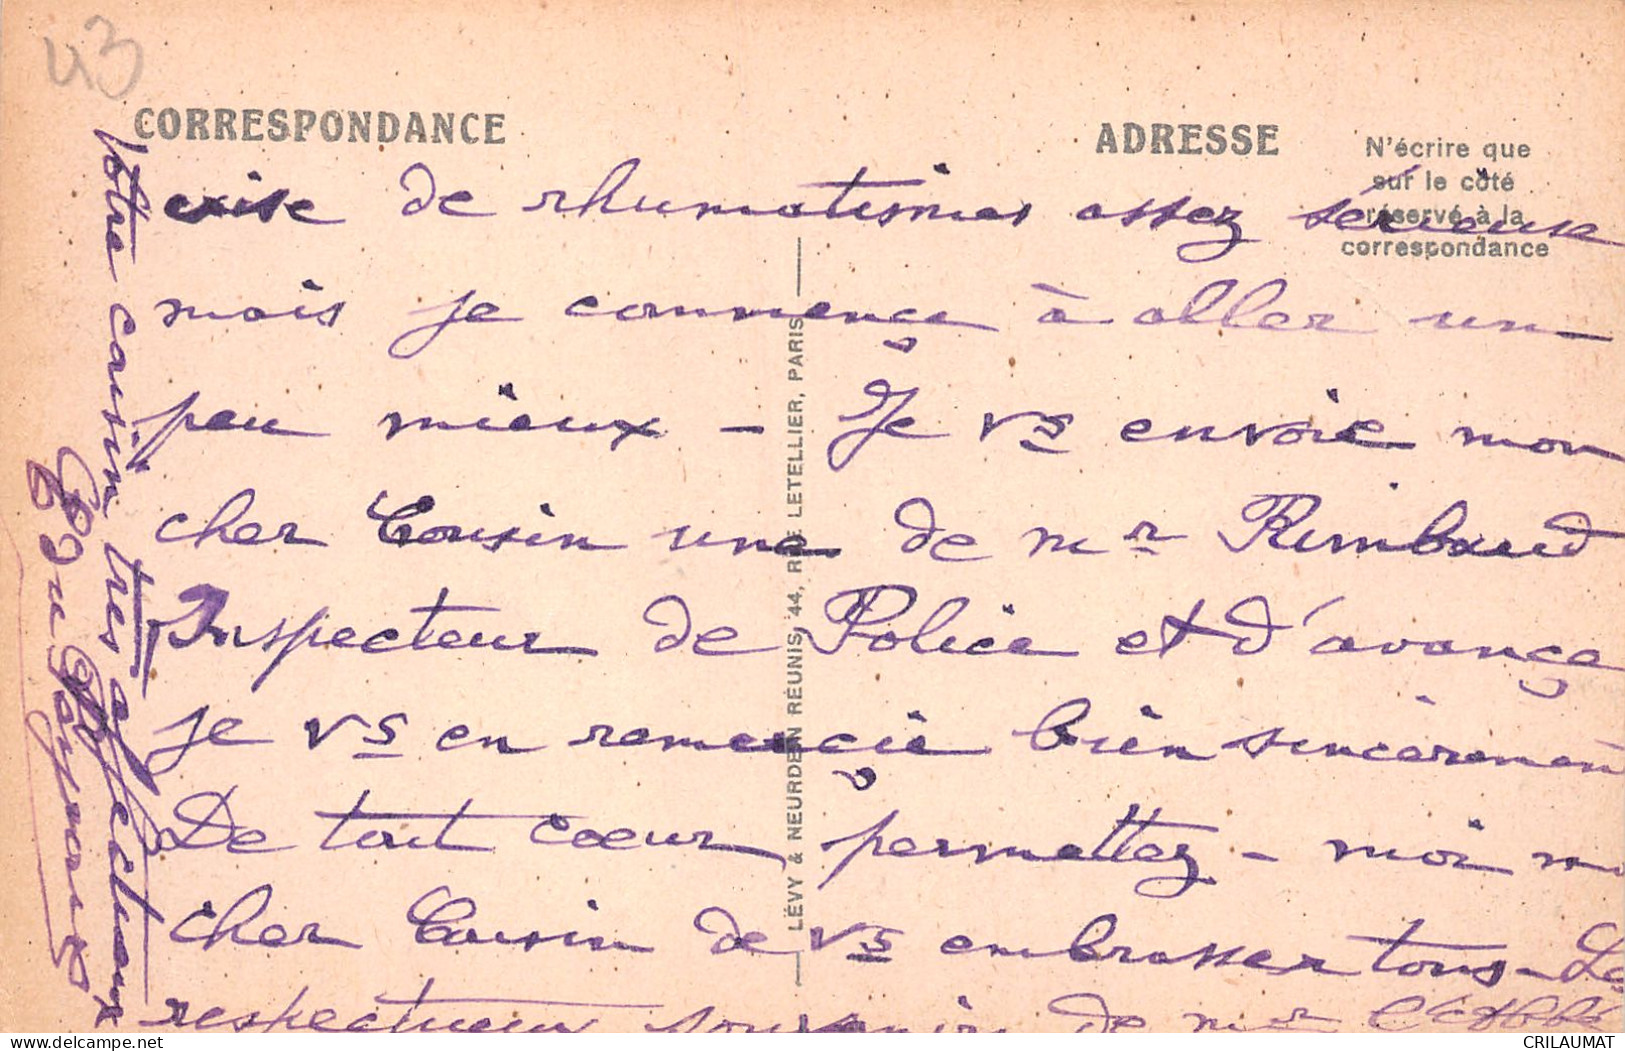 43
CORRESPONDANCE
ADRESSE
N'écrire que
sur le côté
réservé à la
correspondance
crise de rhumatismes assez sérieuse
mais je commençe à aller un
peu mieux - Je vs envoie mon
cher Cousin une de mr Rimbaud
Inspecteur de Police et d'avançe
je vs en remerçie bien sincèrement
De tout coeur permettez - moi mo
cher Cousin de vs embrasser tous - Le
respectueux souvenir de mr l'Abbé
Votre cousin très affectueux
LÉVY & NEURDEIN RÉUNIS, 44, RUE LETELLIER, PARIS
CRILAUMAT